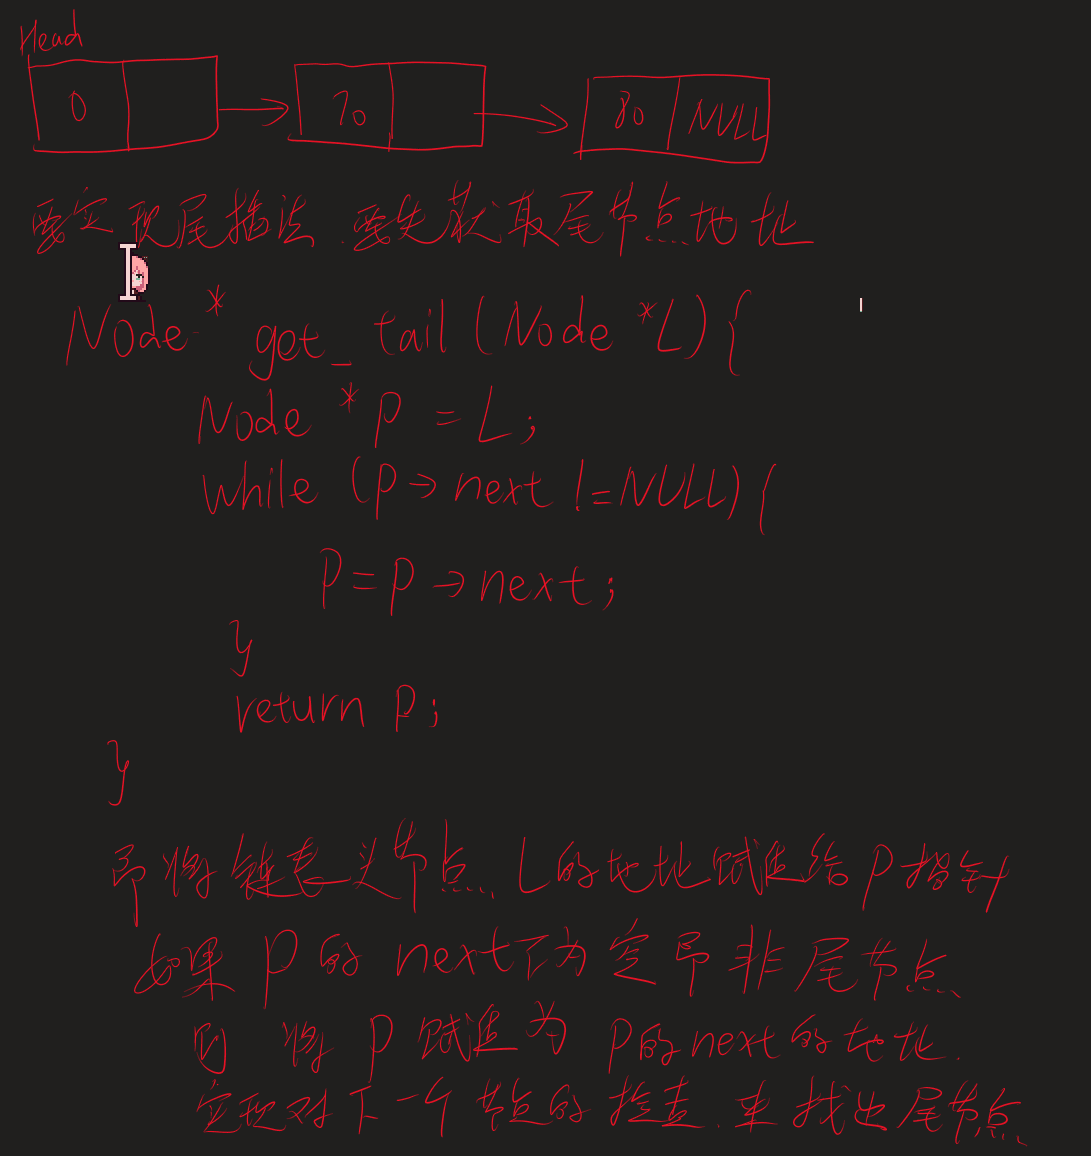 Head
0 70 80 NULL
要实现尾插法.要先获取尾节点地址
Node * get_tail (Node *L){
Node *p = L;
while (p→next != NULL){
p=p→next;
}
return p;
}
即将链表头节点L的地址赋值给p指针
如果p的next不为空即非尾节点
则将p赋值为p的next的地址.
实现对下一个节点的检查.来找出尾节点